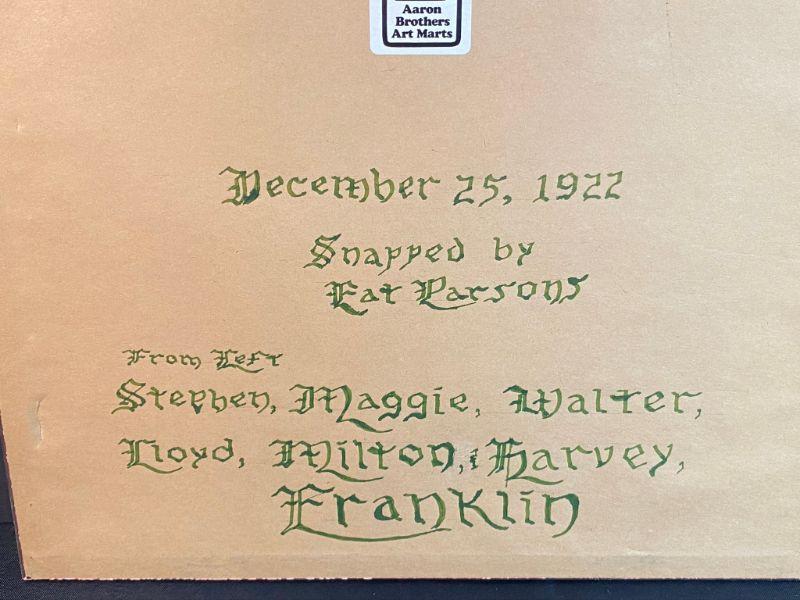 Aaron
Brothers
Art Marts
December 25, 1922
Snapped by
Fat Parsons
From Left
Stephen, Maggie, Walter,
Lloyd, Milton, & Harvey,
Franklin